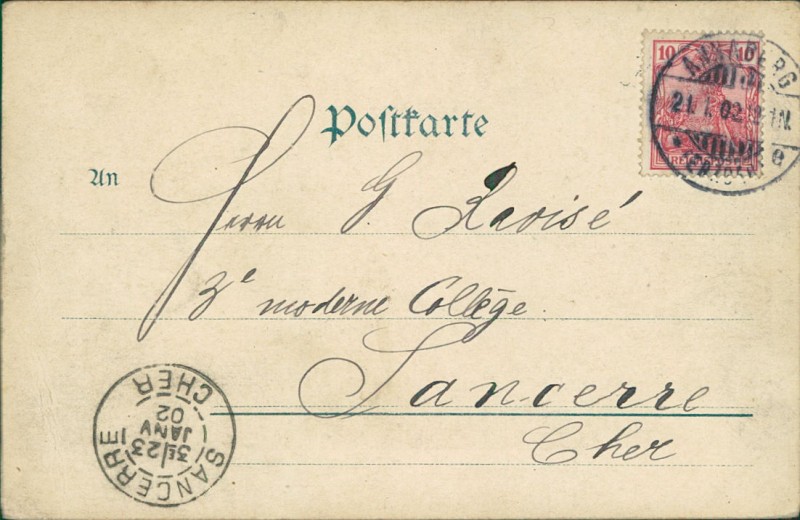 Postkarte
10 10
REICHSPOST
ANNABERG
21.1.02
(ERZGEB.)
An
Herrn G. Ravisé
3e moderne Collège.
Sancerre
Cher
SANCERRE
3E 23
JANV
02
CHER